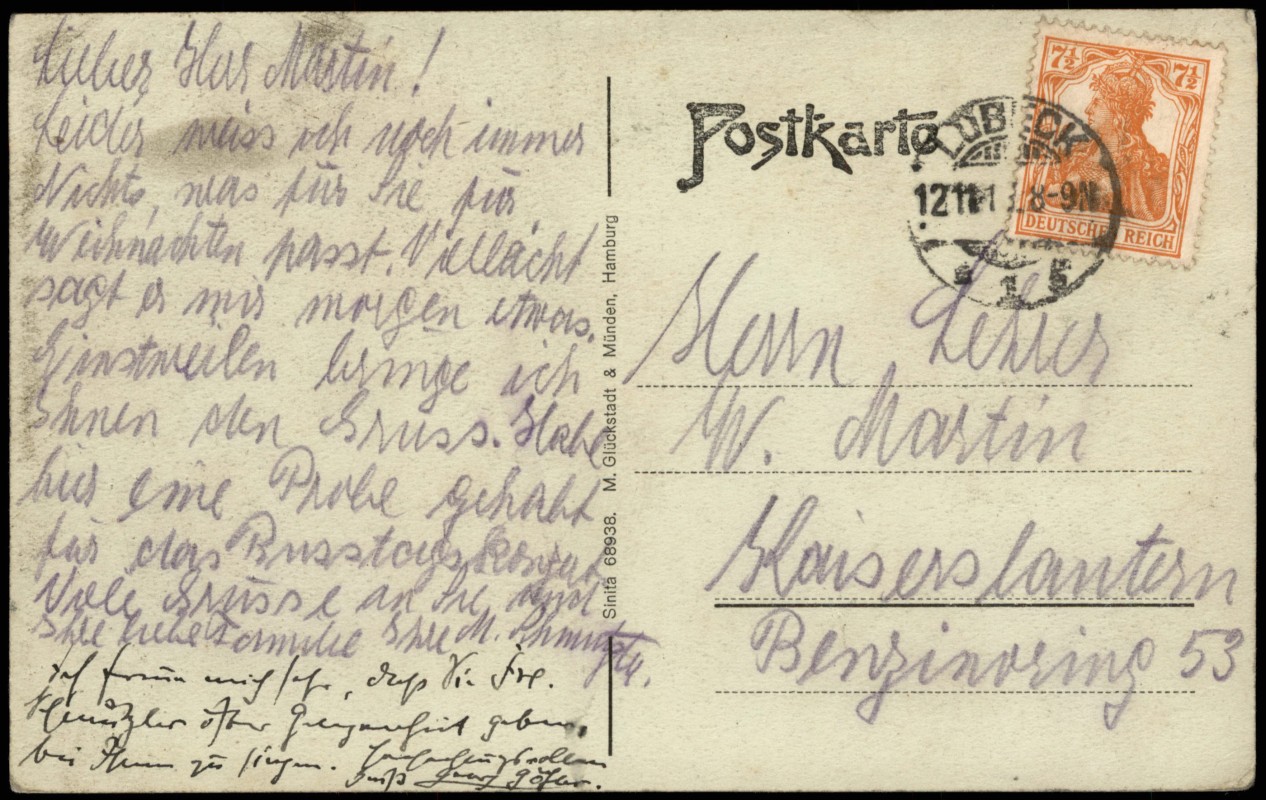 Lieber Herr Martin!
Leider weiss ich noch immer
Nichts, was für Sie für
Weihnachten passt. Villeicht
sagt er mir morgen etwas.
Einstweilen bringe ich
Ihnen den Gruss. Habe
hier eine Probe gehabt
für das Busstagskonzert.
Viele Grüsse an Sie und
Ihre liebe Familie Ihre M.
Ich freue mich sehr, daß Sie Frl.
öfter Gelegenheit geben,
bei Ihnen zu singen. Hochachtungsvollem
Gruß Georg
Sinita 68938. M. Glückstadt & Münden, Hamburg
Postkarte
LÜBECK
8-9N
7½ 7½
DEUTSCHES REICH
Herrn Lehrer
W. Martin
Kaiserslautern
Benzinoring 53